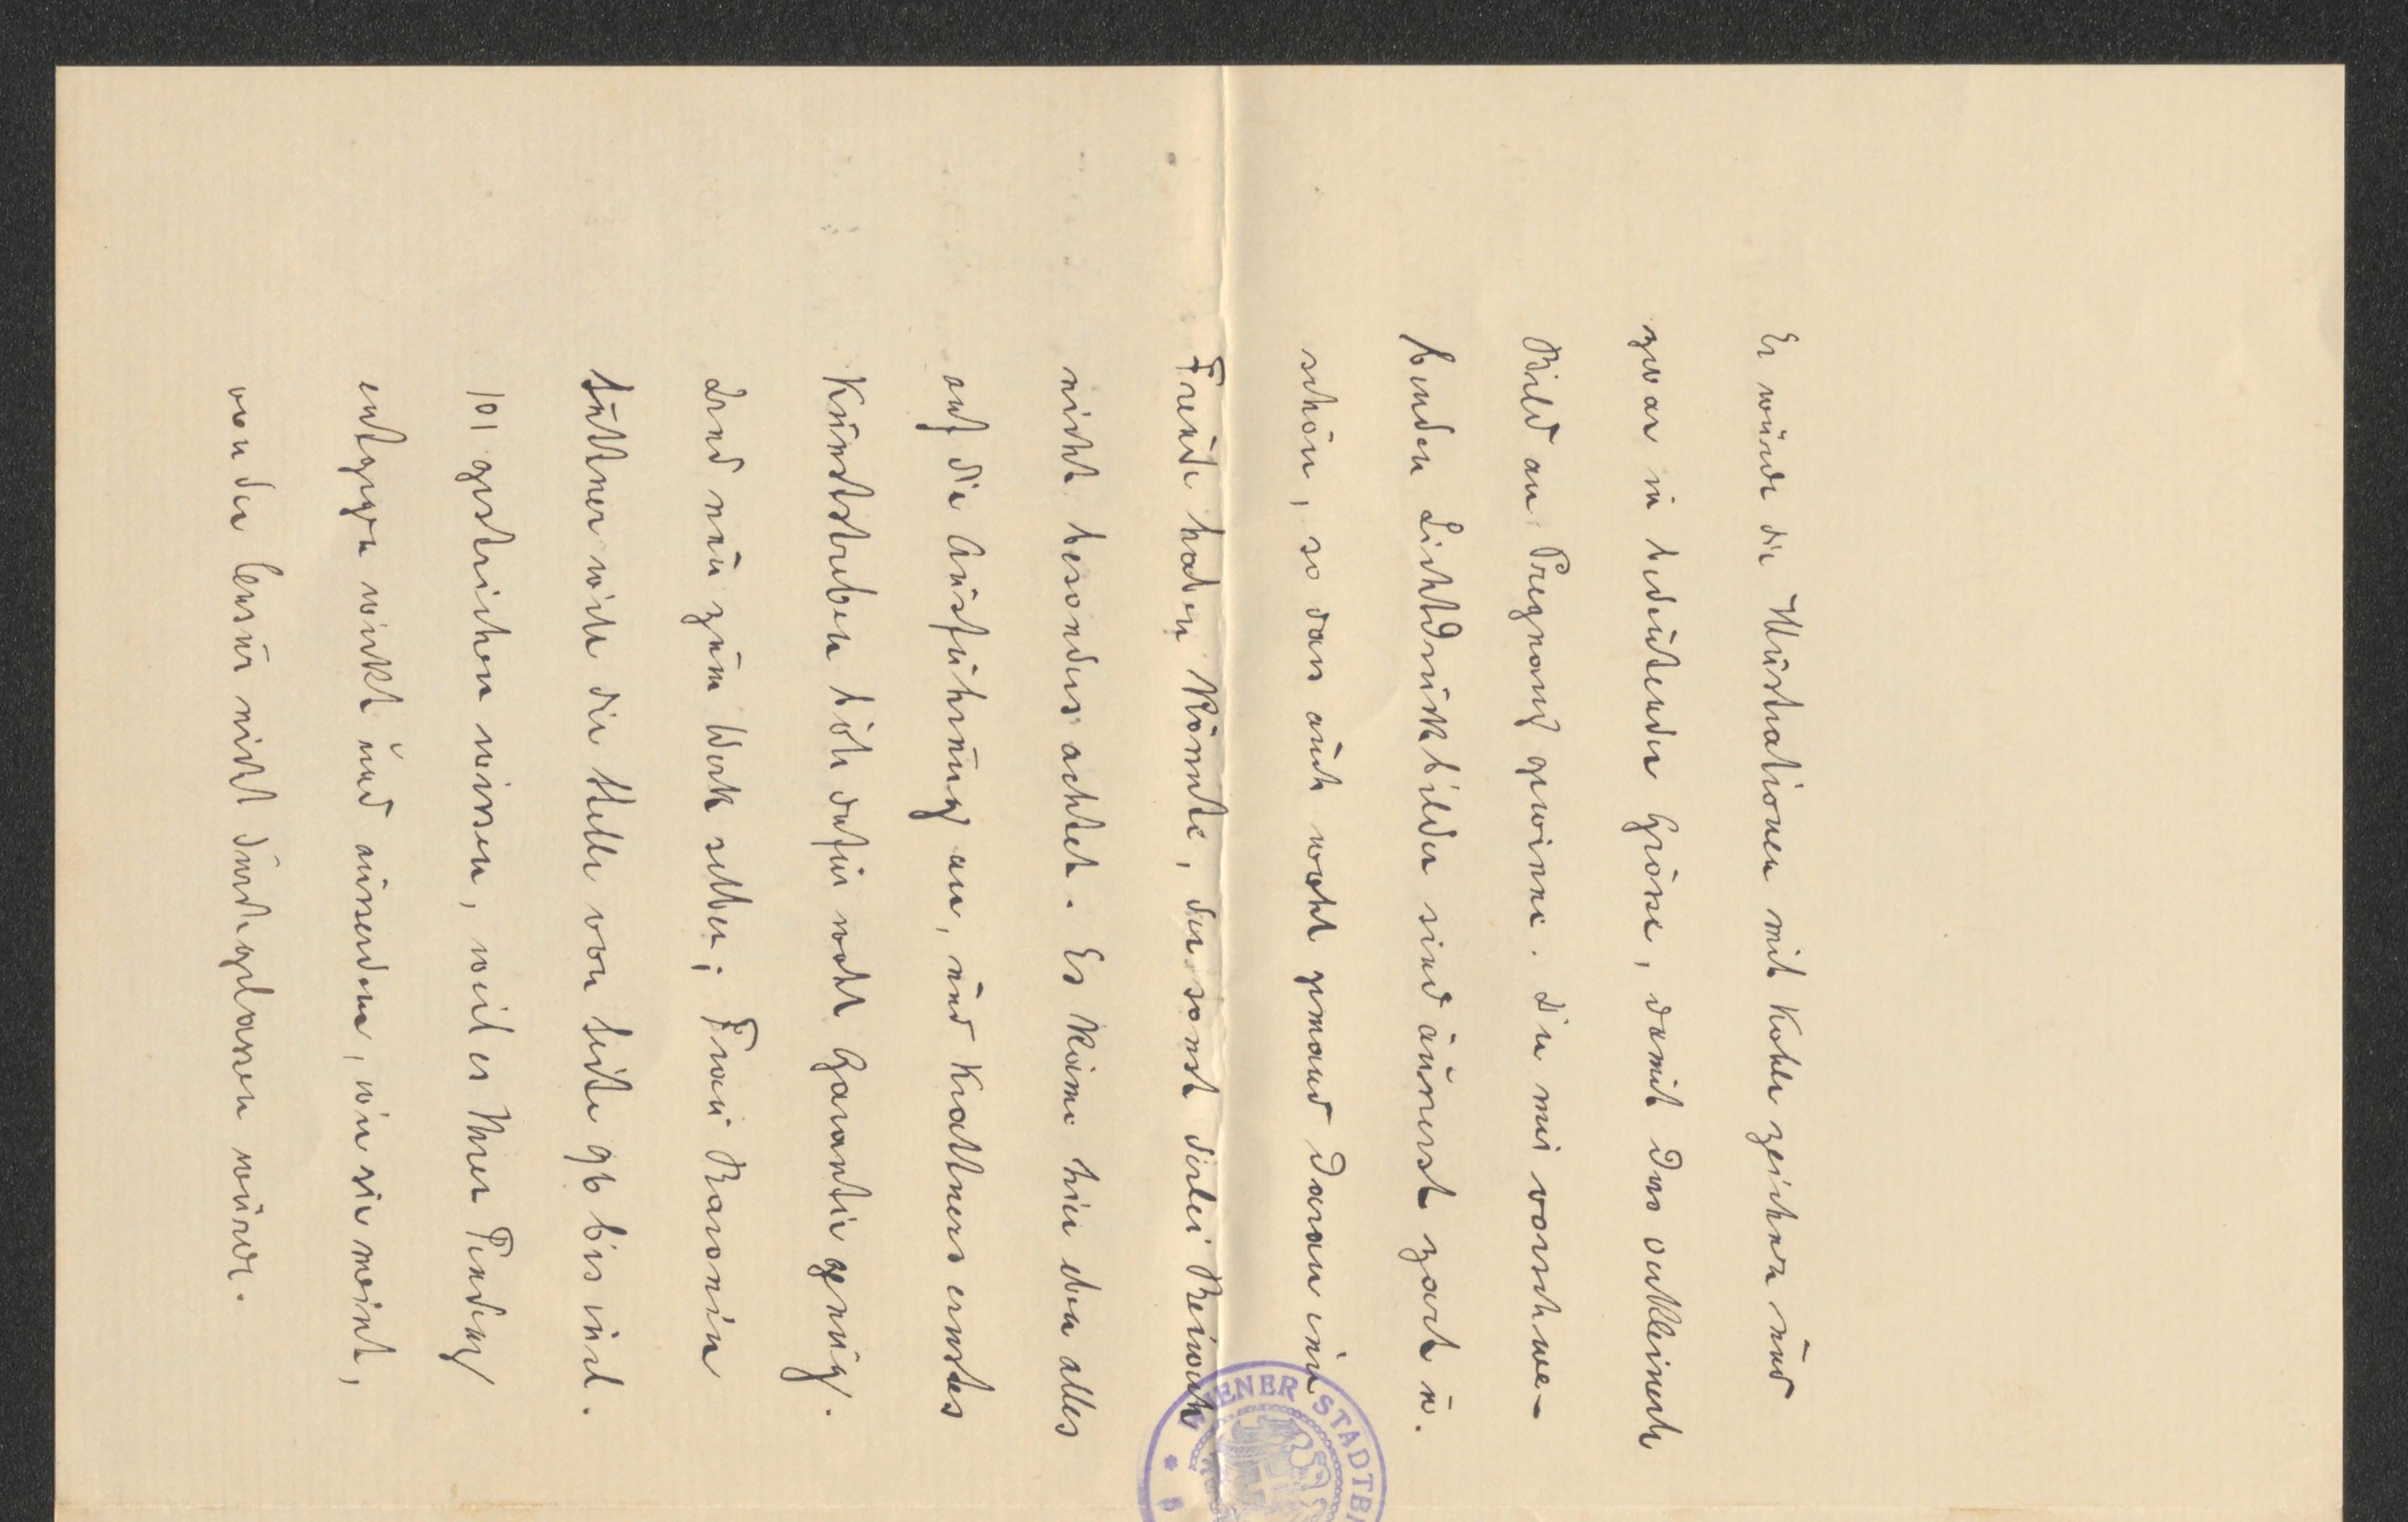 Er würde die Illustrationen mit Kohle zeichnen und
zwar in bedeutender Grösse, damit das verkleinerte
Bild an Pregnanz gewinne. Die mir vorschwe-
benden Lichtdruckbilder sind äusserst zart u.
schön, so dass auch wohl jemand daran eine
Freude haben könnte, der sonst derlei Beiwerk
nicht besonders achtet. Es käme hier eben alles
auf die Ausführung an, und Krattners ernstes
Kunststreben böte dafür wohl Garantie genug.
Und nun zum Werk selber; Frau Baronin
Suttner will die Stelle von Seite 96 bis incl.
101 gestrichen wissen, weil es Ihrer Tendenz
entgegen wirkt und ausserdem, wie sie meint,
von der Censur nicht durchgelassen würde.
WIENER STADTB